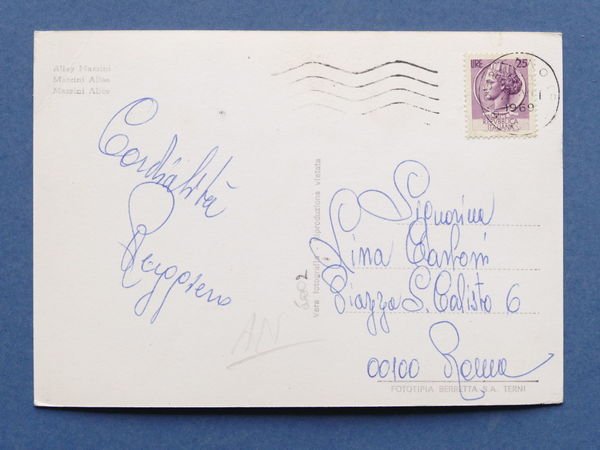 Alley Mazzini
Mazzini Allee
Mazzini Alice
LIRE 25
1969
REPVBBLICA
ITALIANA
Cordialità
Ruggero
Vera fotografia - riproduzione vietata
6002
AN
Signorina
Lina Carboni
Piazza S. Calisto 6
00100 Roma
FOTOTIPIA BERRETTA S.A. TERNI